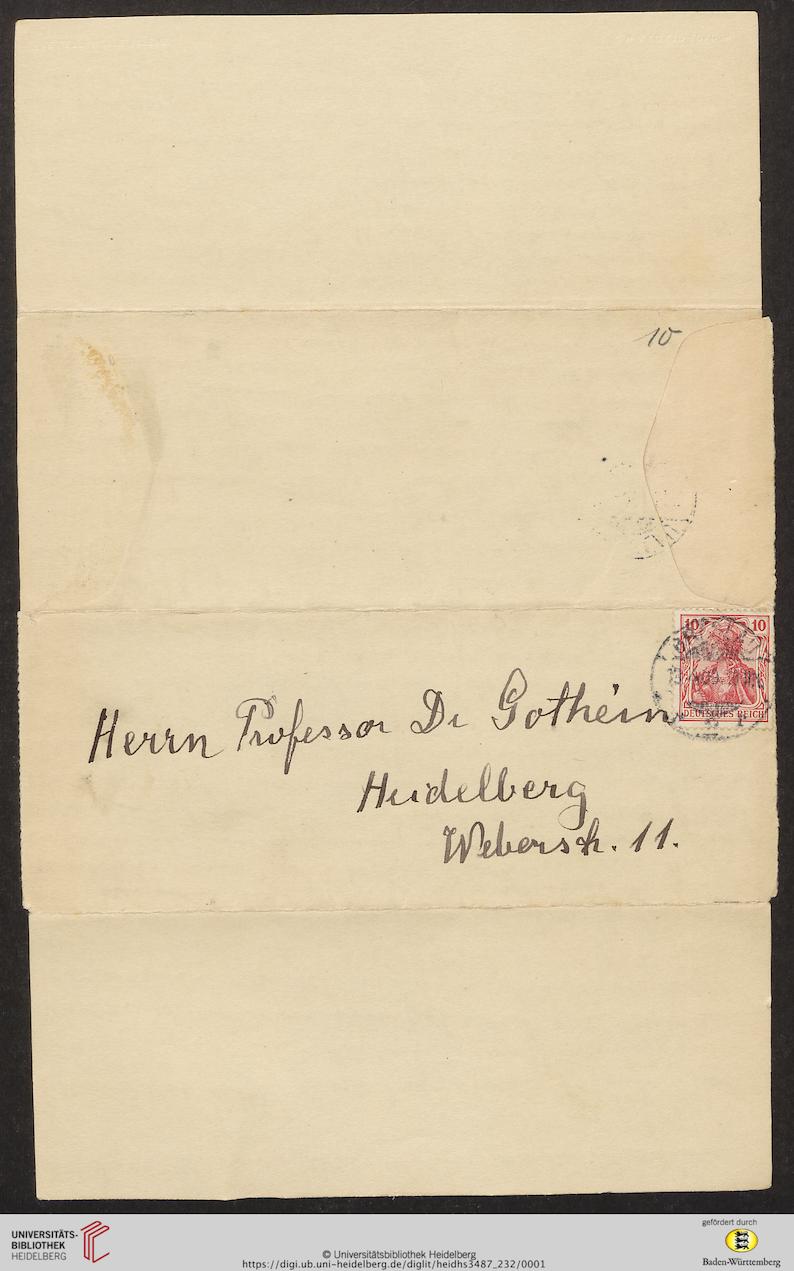 10
10 10
DEUTSCHES REICH
Herrn Professor Dr Gothein
Heidelberg
Weberstr. 11.
UNIVERSITÄTS-
BIBLIOTHEK
HEIDELBERG
© Universitätsbibliothek Heidelberg
https://digi.ub.uni-heidelberg.de/diglit/heidhs3487_232/0001
gefördert durch
Baden-Württemberg